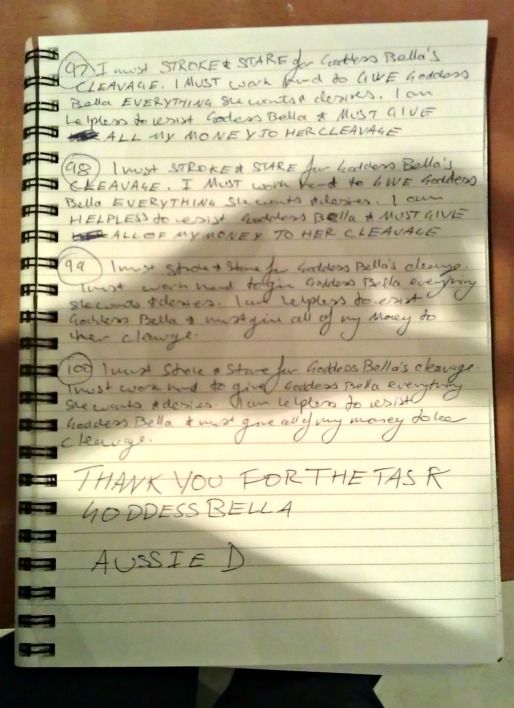 97) I must STROKE & STARE for Goddess Bella's
CLEAVAGE. I MUST work hard to GIVE Goddess
Bella EVERYTHING she wants & desires. I am
helpless to resist Goddess Bella & MUST GIVE
ALL MY MONEY TO HER CLEAVAGE
98) I must STROKE & STARE for Goddess Bella's
CLEAVAGE. I MUST work hard to GIVE Goddess
Bella EVERYTHING she wants & desires. I am
HELPLESS to resist Goddess Bella & MUST GIVE
ALL OF MY MONEY TO HER CLEAVAGE
99) I must stroke & stare for Goddess Bella's cleavage.
I must work hard to give Goddess Bella everything
she wants & desires. I am helpless to resist
Goddess Bella & must give all of my money to
her cleavage.
100) I must stroke & stare for Goddess Bella's cleavage.
I must work hard to give Goddess Bella everything
she wants & desires. I am helpless to resist
Goddess Bella & must give all of my money to her
cleavage.
THANK YOU FOR THE TASK
GODDESS BELLA
AUSSIE D